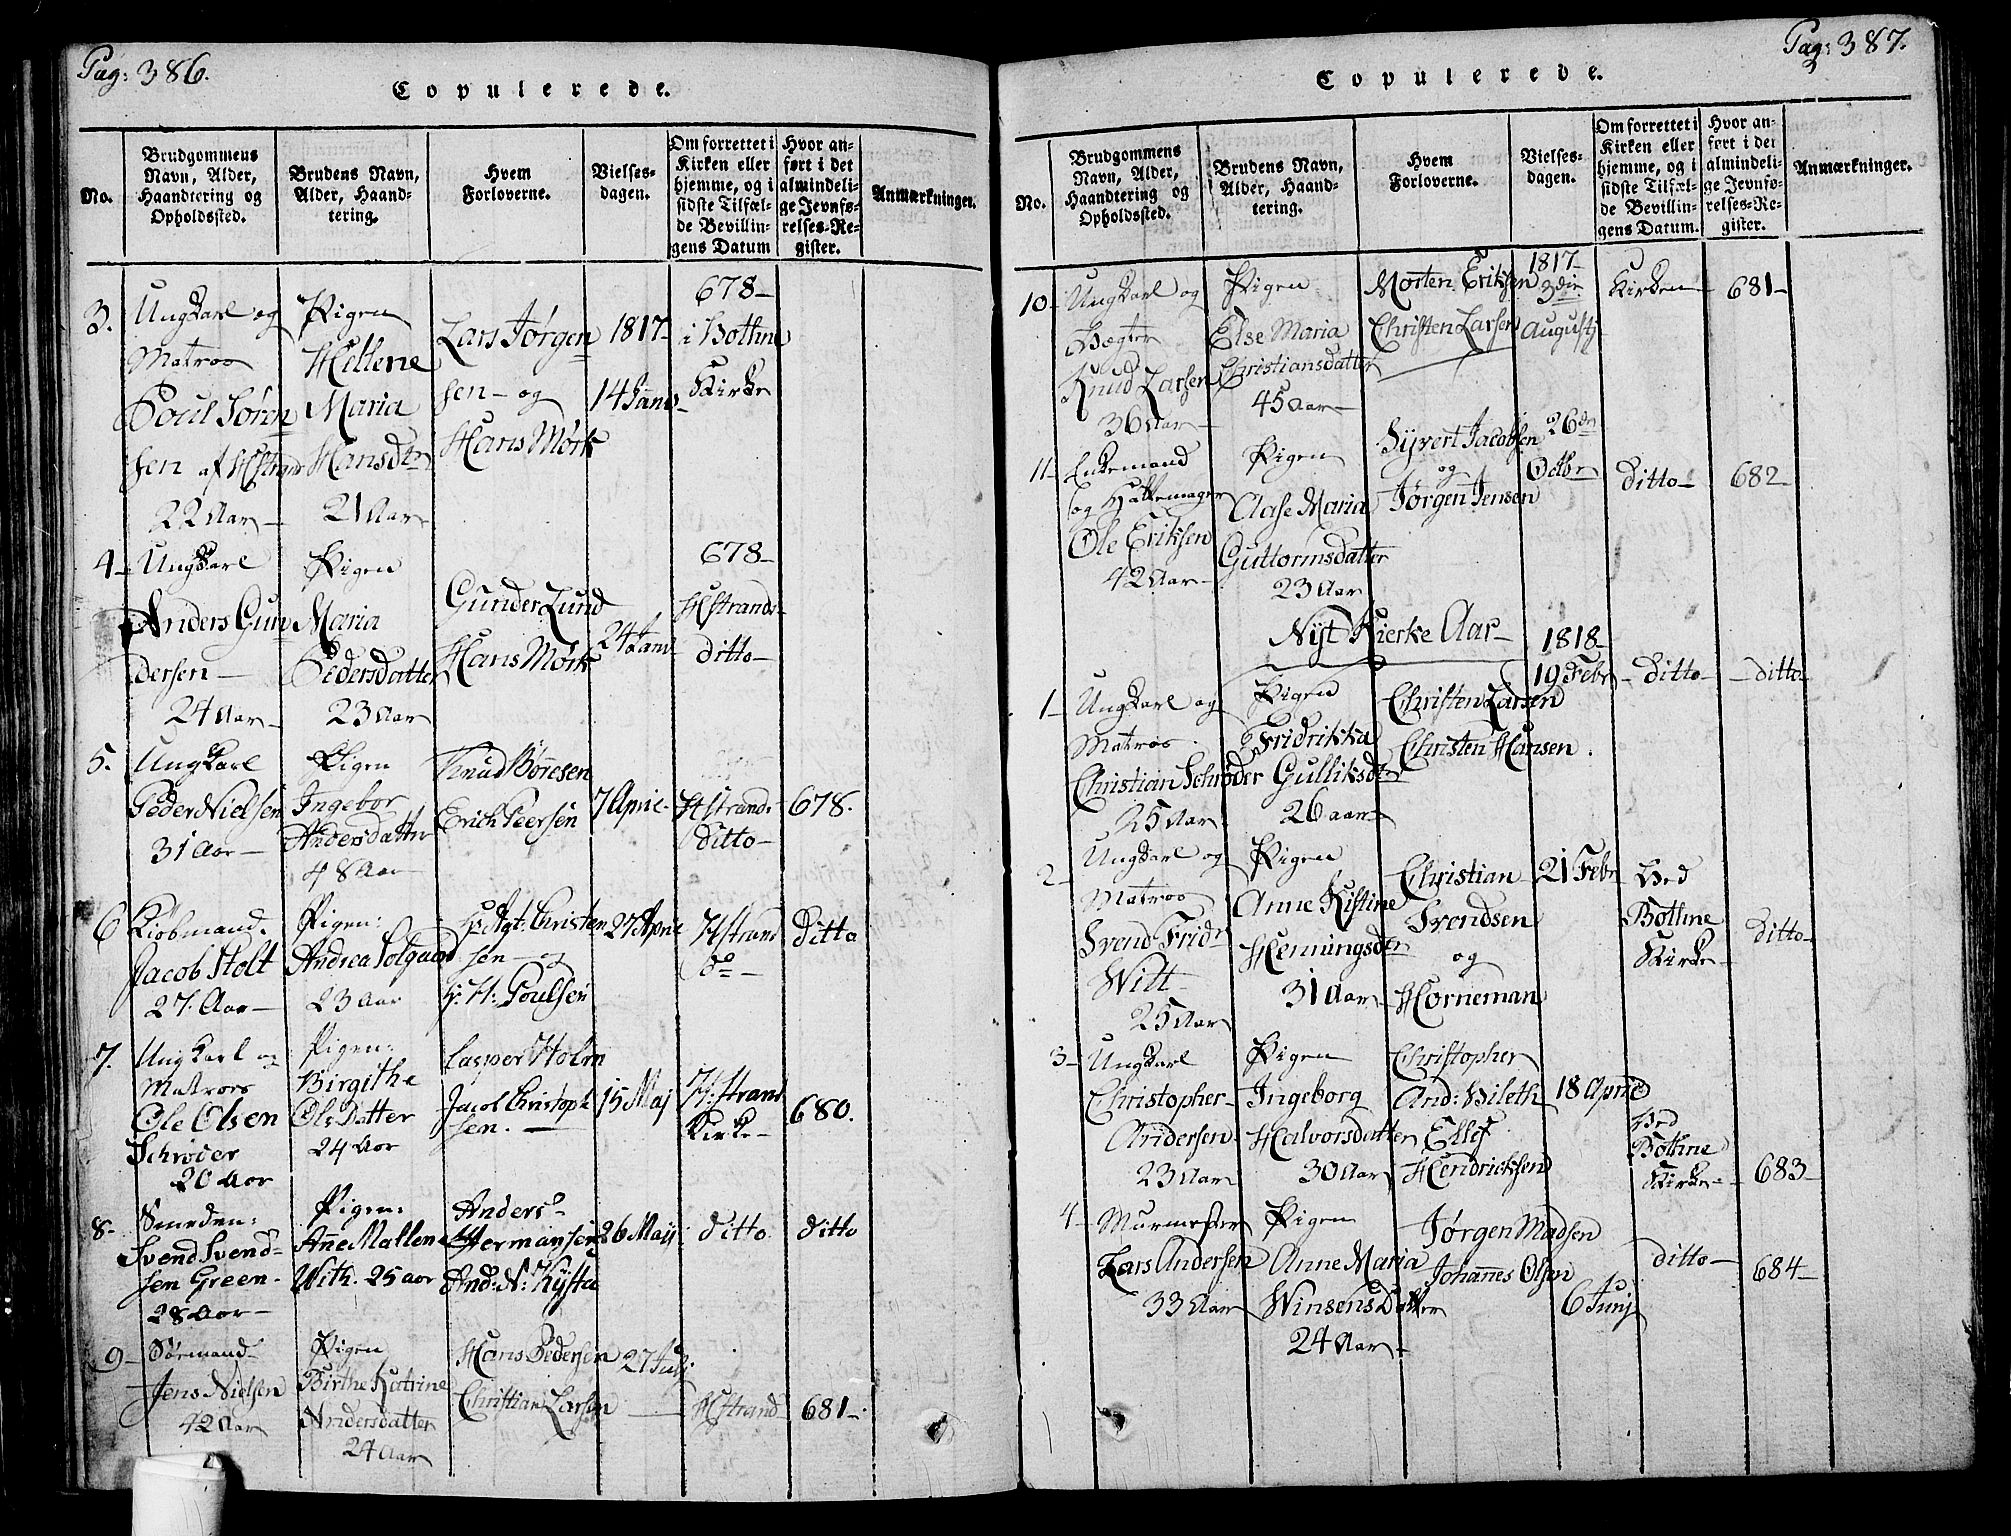 Pag: 386.
Copulerede.
No.
Brudgommens
Navn, Alder,
Haandtering og
Opholdssted.
Brudens Navn,
Alder, Haand-
tering.
Hvem
Forloverne.
Vielses-
dagen.
Om forrettet i
Kirken eller
hjemme, og i
sidste Tilfæl-
de Bevillin-
gens Datum
Hvor an-
ført i det
almindeli-
ge Jevnfø-
relses-Re-
gister.
Anmærkninger.
3.
Ungkarl og
Matros
Poul Søren
sen af Hstrand
22 Aar
Pigen
Hellene
Maria
Hansdtr
21 Aar
Lars Jørgen
sen - og
Hans Mørk
1817
14 Janv
678
i Bothne
Kirke
4
Ungkarl
Anders Gun
dersen
24 Aar
Pigen
Maria
Pedersdatter
23 Aar
Gunder Lund
Hans Mørk
24 Janv
678
Hstrands
ditto
5.
Ungkarl
Peder Nielsen
31 Aar
Pigen
Ingebor
Andersdatter
48 Aar
Knud Børresen
Erich Peersen
7 April
Hstrands
ditto
678.
6
Kiøbmand.
Jacob Stolt
27. Aar
Pigen:
Andrea Solgaard
23 Aar
Hr Agt: Christen
sen - og
Hr. H: Poulsen
27 April
Hstrand
do
Ditto
7.
Ungkarl og
Matros
Ole Olsen
Schrøder
20 Aar
Pigen:
Birgithe
Ols Datter
24 Aar
Casper Holm
Jacob Christoph
sen.
15 Maj
H: strand
Kirke
680.
8
Smeden:
Svend Svend-
sen Green
28 Aar
Pigen:
Anne Mallene
With. 25 aar
Anders
Hermansen
And: N: Kysta
26 Maij
ditto
ditto
9
Sømand
Jens Nielsen
42 Aar
Pigen
Birthe Katrine
Andersdatter
24 Aar
Hans Pedersen
Christian Larsen
27 Julj
Hstrand
681
Pag: 387.
Copulerede.
No.
Brudgommens
Navn, Alder,
Haandtering og
Opholdssted.
Brudens Navn,
Alder, Haand-
tering.
Hvem
Forloverne.
Vielses-
dagen.
Om forrettet i
Kirken eller
hjemme, og i
sidste Tilfæl-
de Bevillin-
gens Datum.
Hvor an-
ført i det
almindeli-
ge Jevnfø-
relses-Re-
gister.
Anmærkninger.
10
Ungkarl og
Vægter
Knud Larsen
36 Aar
Pigen
Else Maria
Christiansdatter
45 Aar
Morten Eriksen
Christen Larsen
1817
3die
Augustj
Kirken
681
11
Enkemand
og Hattemager
Ole Eriksen
42 Aar
Pigen
Aase Maria
Guttormsdatter
23 Aar
Syvert Jacobsen
og
Jørgen Jensen
26de
Octbr
ditto
682
Nyt Kierke Aar
1818
1
Ungkarl og
Matros
Christian Schrøder
25 Aar
Pigen
Fridrikka
Gulliksdtr
26 aar
Christen Larsen
Christen Hansen
19 Febr
ditto
ditto
2
Ungkarl og
Matros
Svend Fridr
Witt
25 Aar
Pigen
Anne Kistine
Hemingsdtr
31 Aar
Christian
Svendsen
og
Horneman
21 Febr
Ved
Bothne
Kirke
ditto
3
Ungkarl
Christopher
Andersen
23 Aar
Pigen
Ingeborg
Halvorsdatter
30 Aar
Christopher
And: Bileth
Ellef
Hendricksen
18 April
Ved
Bothne
Kirke
683
4
Murmester
Lars Andersen
33 Aar
Pigen
Anne Maria
Winsens Datter
24 Aar
Jørgen Madsen
Johannes Olsen
6 Junj
ditto
684